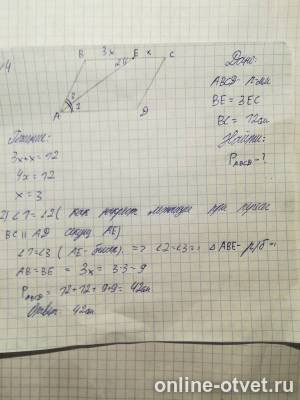 4
B 3x E x C
A D
Дано:
ABCD -
BE = 3EC
BC = 12см
Найти:
P ABCD - ?
Решение:
3x+x = 12
4x = 12
x = 3
2) ∠1 = ∠2 ( как накрест лежащие при
BC || AD секущ. AE)
∠1 = ∠3 ( AE - бисс.) => ∠2 = ∠3 => △ABE - р/б =>
AB = BE = 3x = 3·3 = 9
P ABCD = 12+12+9+9 = 42см
Ответ: 42см
online-otvet.ru